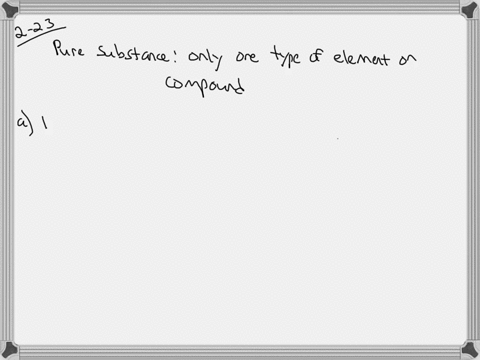 2-23
Pure substance: only one type of element or
compound
a) 1